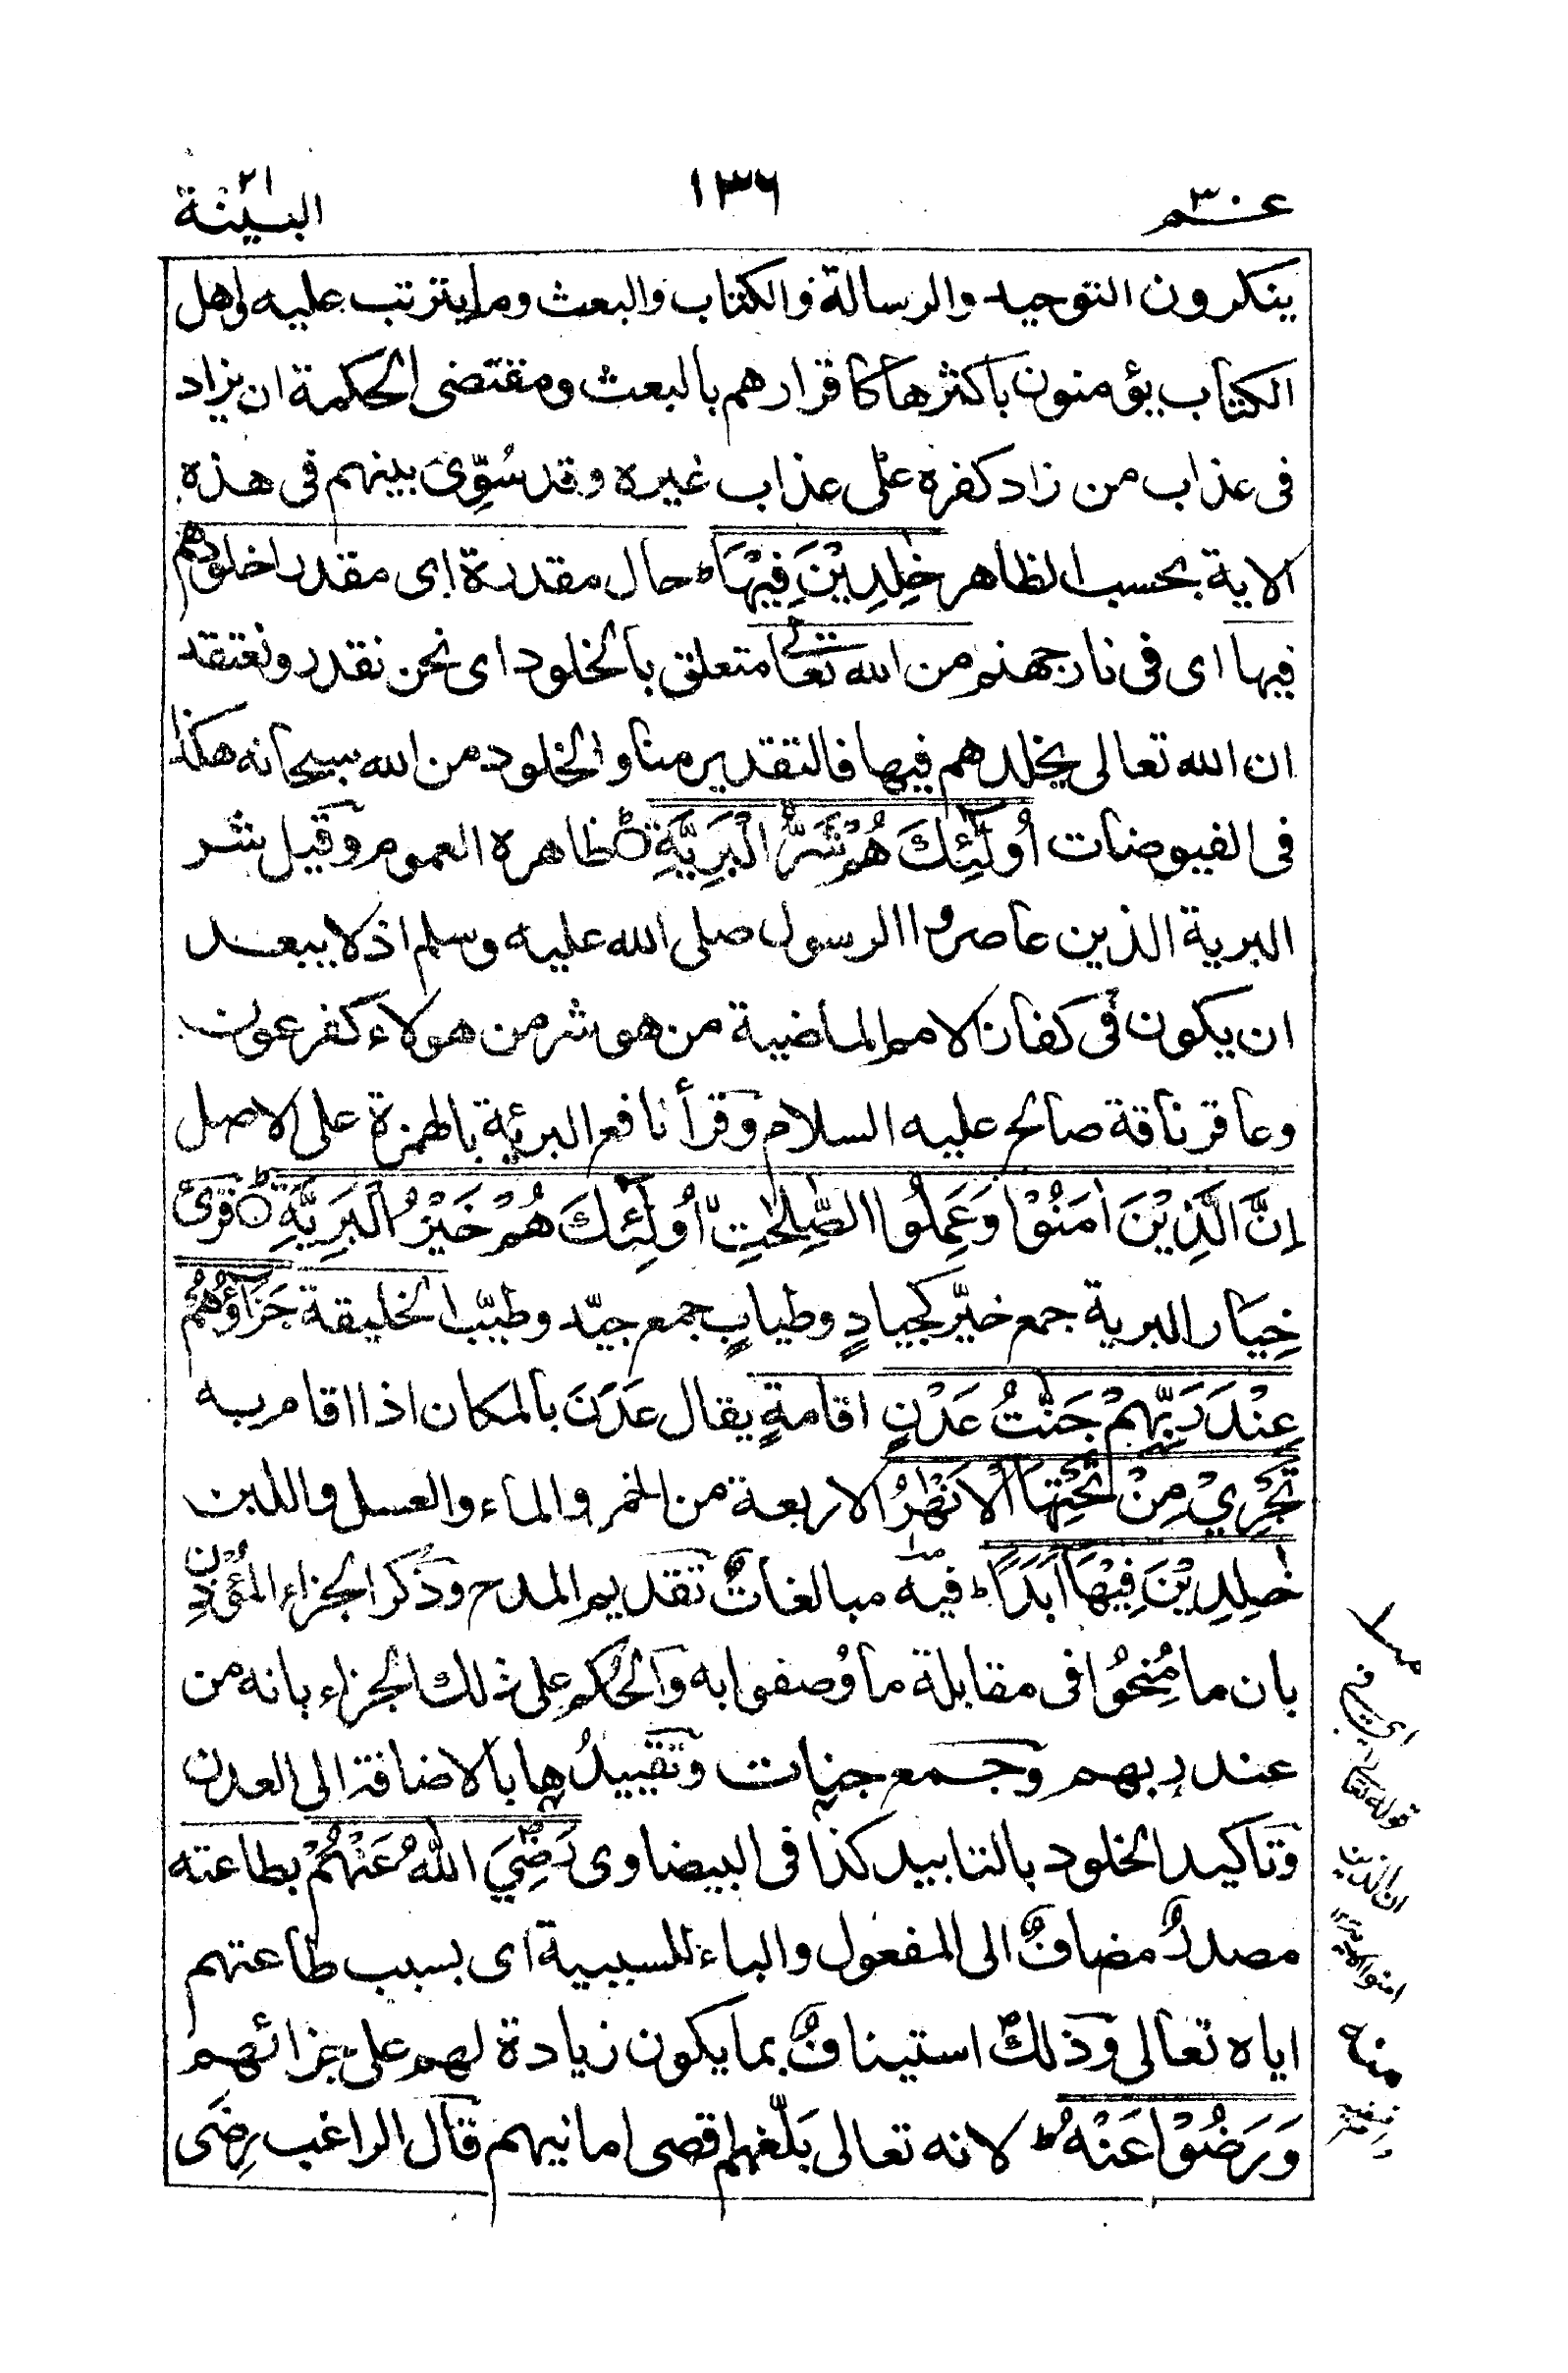 عـ۳۰ـم
۱۳۶
البينة ۲۱
ينكرون التوحيد والرسالة والكتاب والبعث وما يترتب عليه واهل
الكتاب يؤمنون باكثرها كاقرارهم بالبعث ومقتضى الحكمة ان يزاد
فى عذاب من زاد كفره على عذاب غيره وقد سُوِّىَ بينهم فى هذه
الاية بحسب الظاهر خٰلِدِيْنَ فِيْهَا ط حال مقدرة اى مقدرا خلودهم
فيها اى فى نار جهنم من الله تعالى متعلق بالخلود اى نحن نقدر ونعتقد
ان الله تعالى يخلدهم فيها فالتقدير منا والخلود من الله سبحانه هكذا
فى الفيوضات اُولٰٓئِكَ هُمْ شَرُّ الْبَرِيَّةِ ط ظاهره العموم وقيل شر
البرية الذين عاصروا الرسول صلى الله عليه وسلم اذ لا يبعد
ان يكون فى كفار الامم الماضية من هو شر من هولاء كفرعون
وعاقر ناقة صالح عليه السلام وقرأ نافع البريئة بالهمزة على الاصل
اِنَّ الَّذِيْنَ اٰمَنُوْا وَعَمِلُوا الصّٰلِحٰتِ اُولٰٓئِكَ هُمْ خَيْرُ الْبَرِيَّةِ ط قرئ
خِيَار البرية جمع خيَّر كجيادٍ وطيابٍ جمع جيّد وطيّب الخليقة جَزَآؤُهُمْ
عِنْدَ رَبِّهِمْ جَنّٰتُ عَدْنٍ اقامةٍ يقال عَدَنَ بالمكان اذا اقام به
تَجْرِيْ مِنْ تَحْتِهَا الْاَنْهٰرُ الاربعة من الخمر والماء والعسل واللبن
خٰلِدِيْنَ فِيْهَا اَبَدًا ط فيه مبالغاتٌ تقديم المدح وذكر الجزاء المُؤْذِن
بان ما مُنِحُوا فى مقابلة ما وُصفوا به والحُكم على ذلك الجزاء بانه من
عند ربهم وجمع جنات وتقييدُها بالاضافة الى العدن
وتاكيد الخلود بالتابيد كذا فى البيضاوى رَضِيَ اللّٰهُ عَنْهُمْ بطاعته
مصدرٌ مضافٌ الى المفعول والباء للسببية اى بسبب طاعتهم
اياه تعالى وذلك استينافٌ بما يكون زيادة لهم على جزائهم
وَرَضُوْا عَنْهُ ط لانه تعالى بَلَّغهم اقصى امانيهم قال الراغب رِضَى
اى فى
قوله تعالى
ان الذين
امنوا الاية
منه